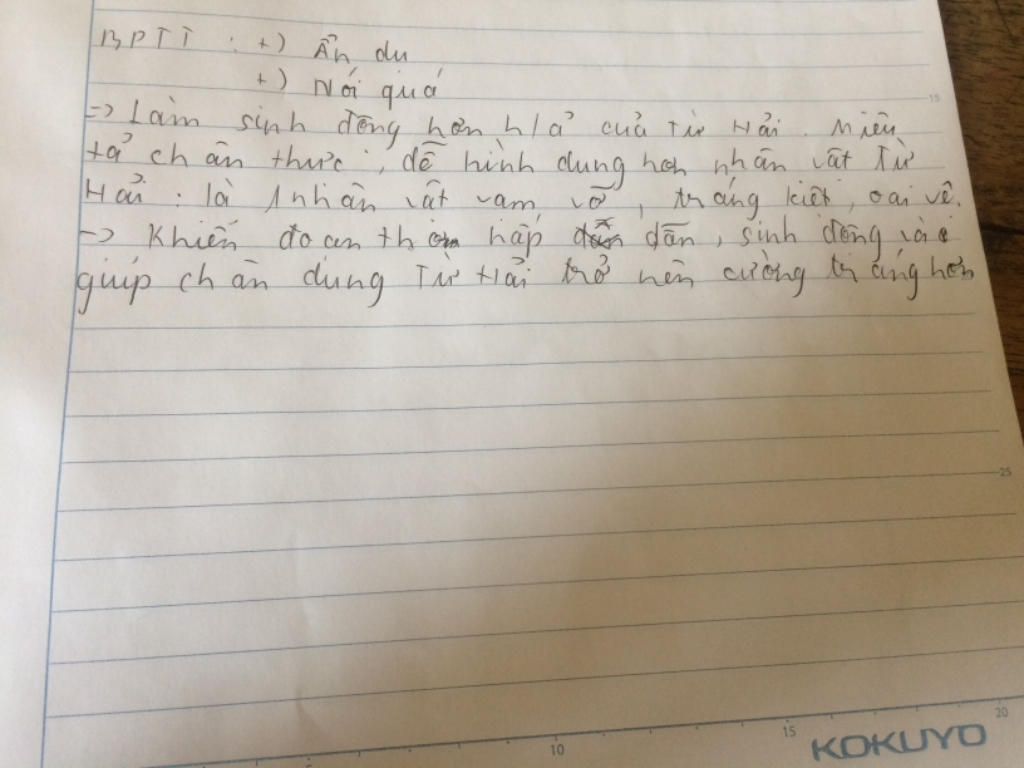 BPTT : +) Ẩn dụ
+) Nói quá
=> Làm sinh động hơn h/ả của Từ Hải. Miêu
tả chân thực, dễ hình dung hơn nhân vật Từ
Hải : là 1 nhân vật vạm vỡ, tráng kiệt, oai vệ.
-> Khiến đoạn thơ hấp dẫn, sinh động và
giúp chân dung Từ Hải trở nên cường tráng hơn
15
25
10
15
20
KOKUYO